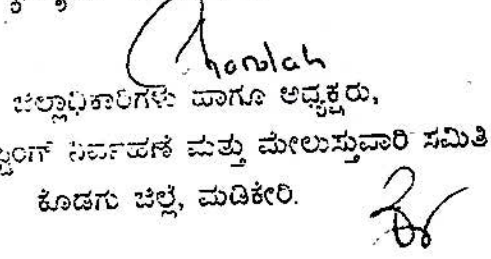 ಜಿಲ್ಲಾಧಿಕಾರಿಗಳು ಹಾಗೂ ಅಧ್ಯಕ್ಷರು,
ನಿರ್ವಹಣೆ ಮತ್ತು ಮೇಲುಸ್ತುವಾರಿ ಸಮಿತಿ
ಕೊಡಗು ಜಿಲ್ಲೆ, ಮಡಿಕೇರಿ.